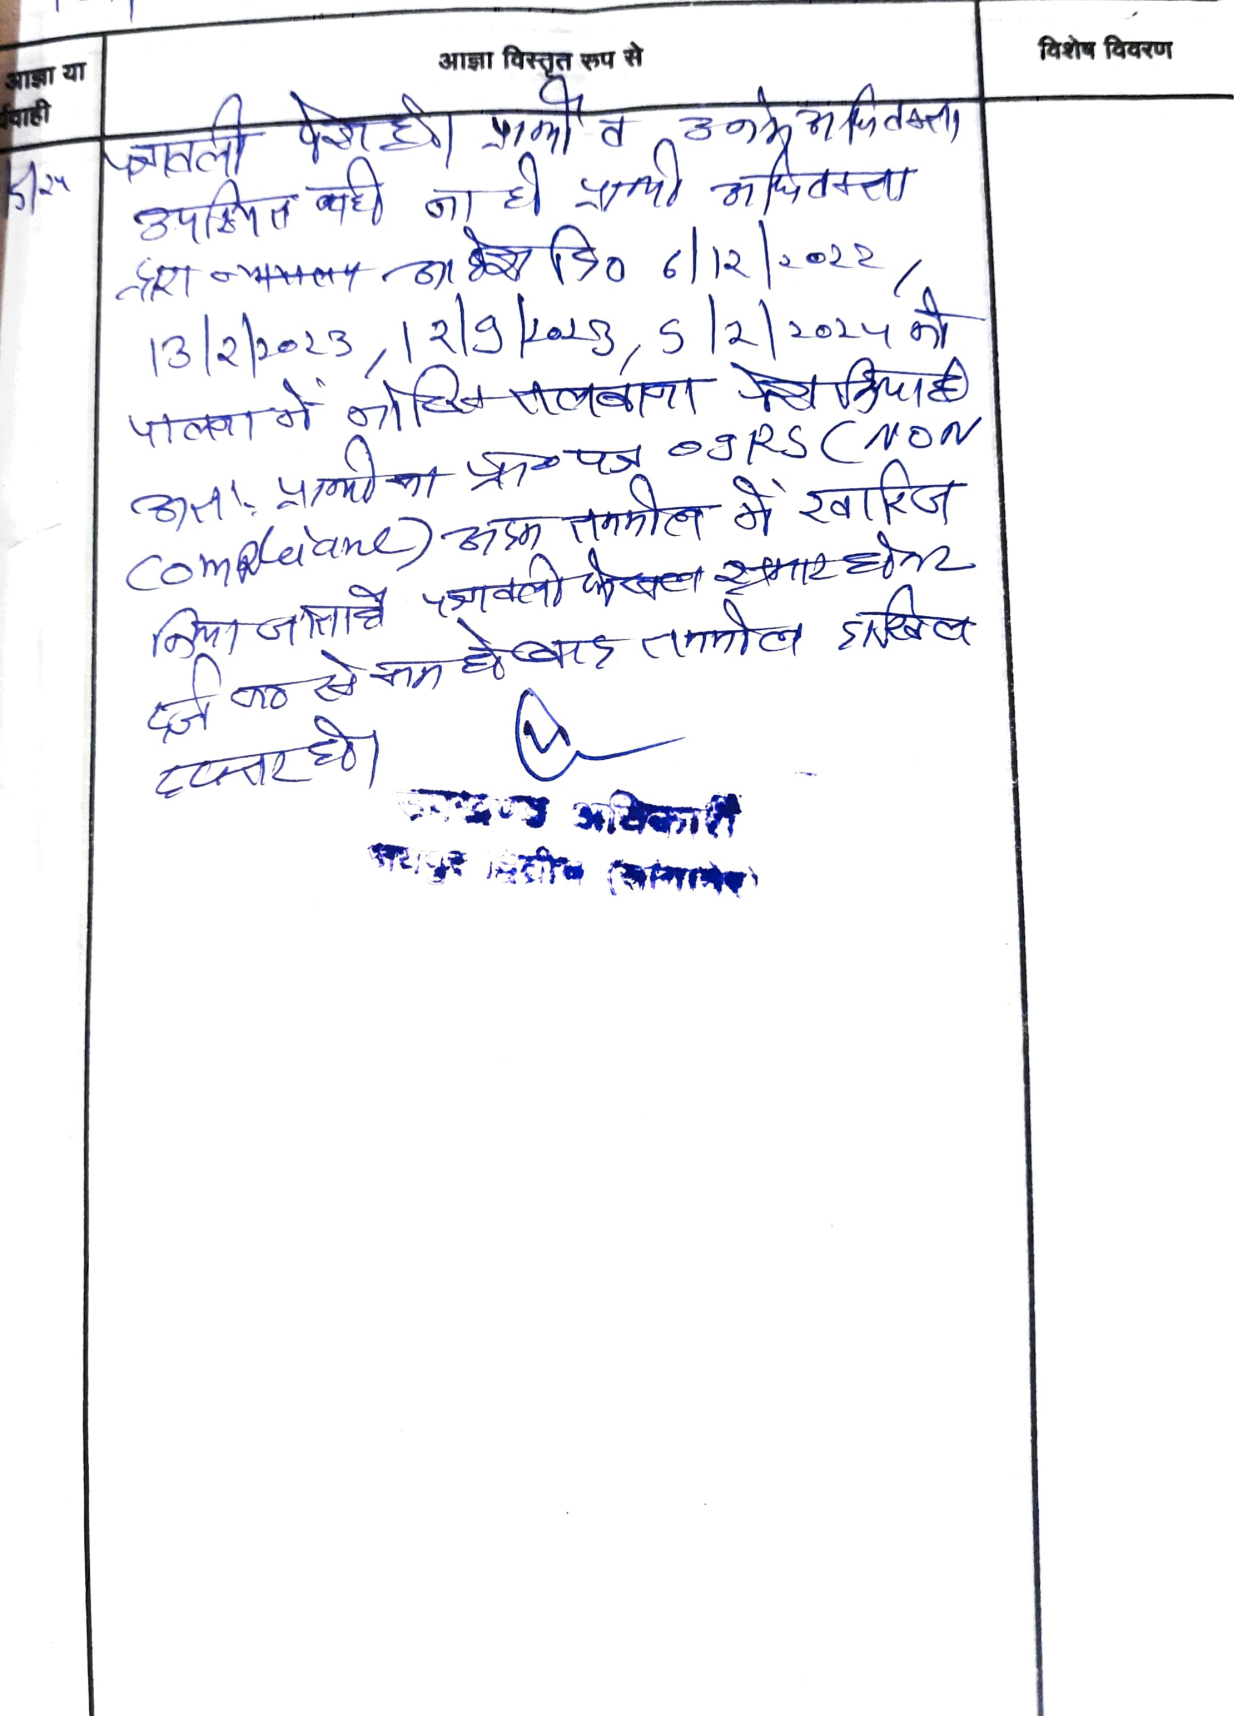 आज्ञा या
आज्ञा विस्तृत रूप से
विशेष विवरण
र्यवाही
5/24
पत्रावली पेश हो। प्रार्थी व उनके अधिवक्ता
उपस्थित नहीं ना ही प्रार्थी अधिवक्ता
द्वारा न्यायालय आदेश दि० 6/12/2022,
13/2/2023, 12/9/2023, 5/2/2024 की
पालना में नोटिस तलबाना पेश किया है
अतः प्रार्थी का प्रा० पत्र 0 9 R 5 (NON
Compleiance) अदम तामील में खारिज
किया जाता है पत्रावली फैसल शुमार होकर
दर्ज न० से कम हो बाद तामील दाखिल
दफ्तर हो।
उपखण्ड अधिकारी
जयपुर द्वितीय (सांगानेर)